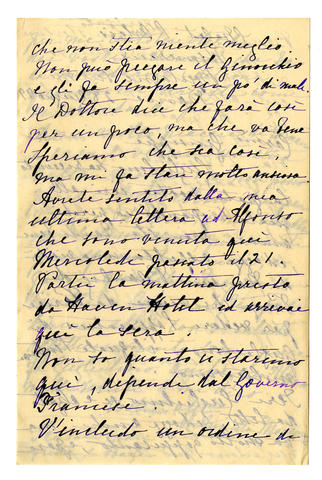 che non stia niente meglio.
Non può piegare il Ginocchio
e gli fa sempre un pò di male.
Il Dottore dice che farà così
per un poco, ma che va bene
Speriamo che sia così,
ma mi fa stare molto ansiosa.
Avrete sentito dalla mia
ultima lettera ad Alfonso
che sono venuta quì
Mercoledì passato il 21.
Partii la mattina presto
da Haven Hotel ed arrivai
quì la sera.
Non so quanto ci staremo
quì, dipende dal Governo
Francese.
V'includo un ordine di